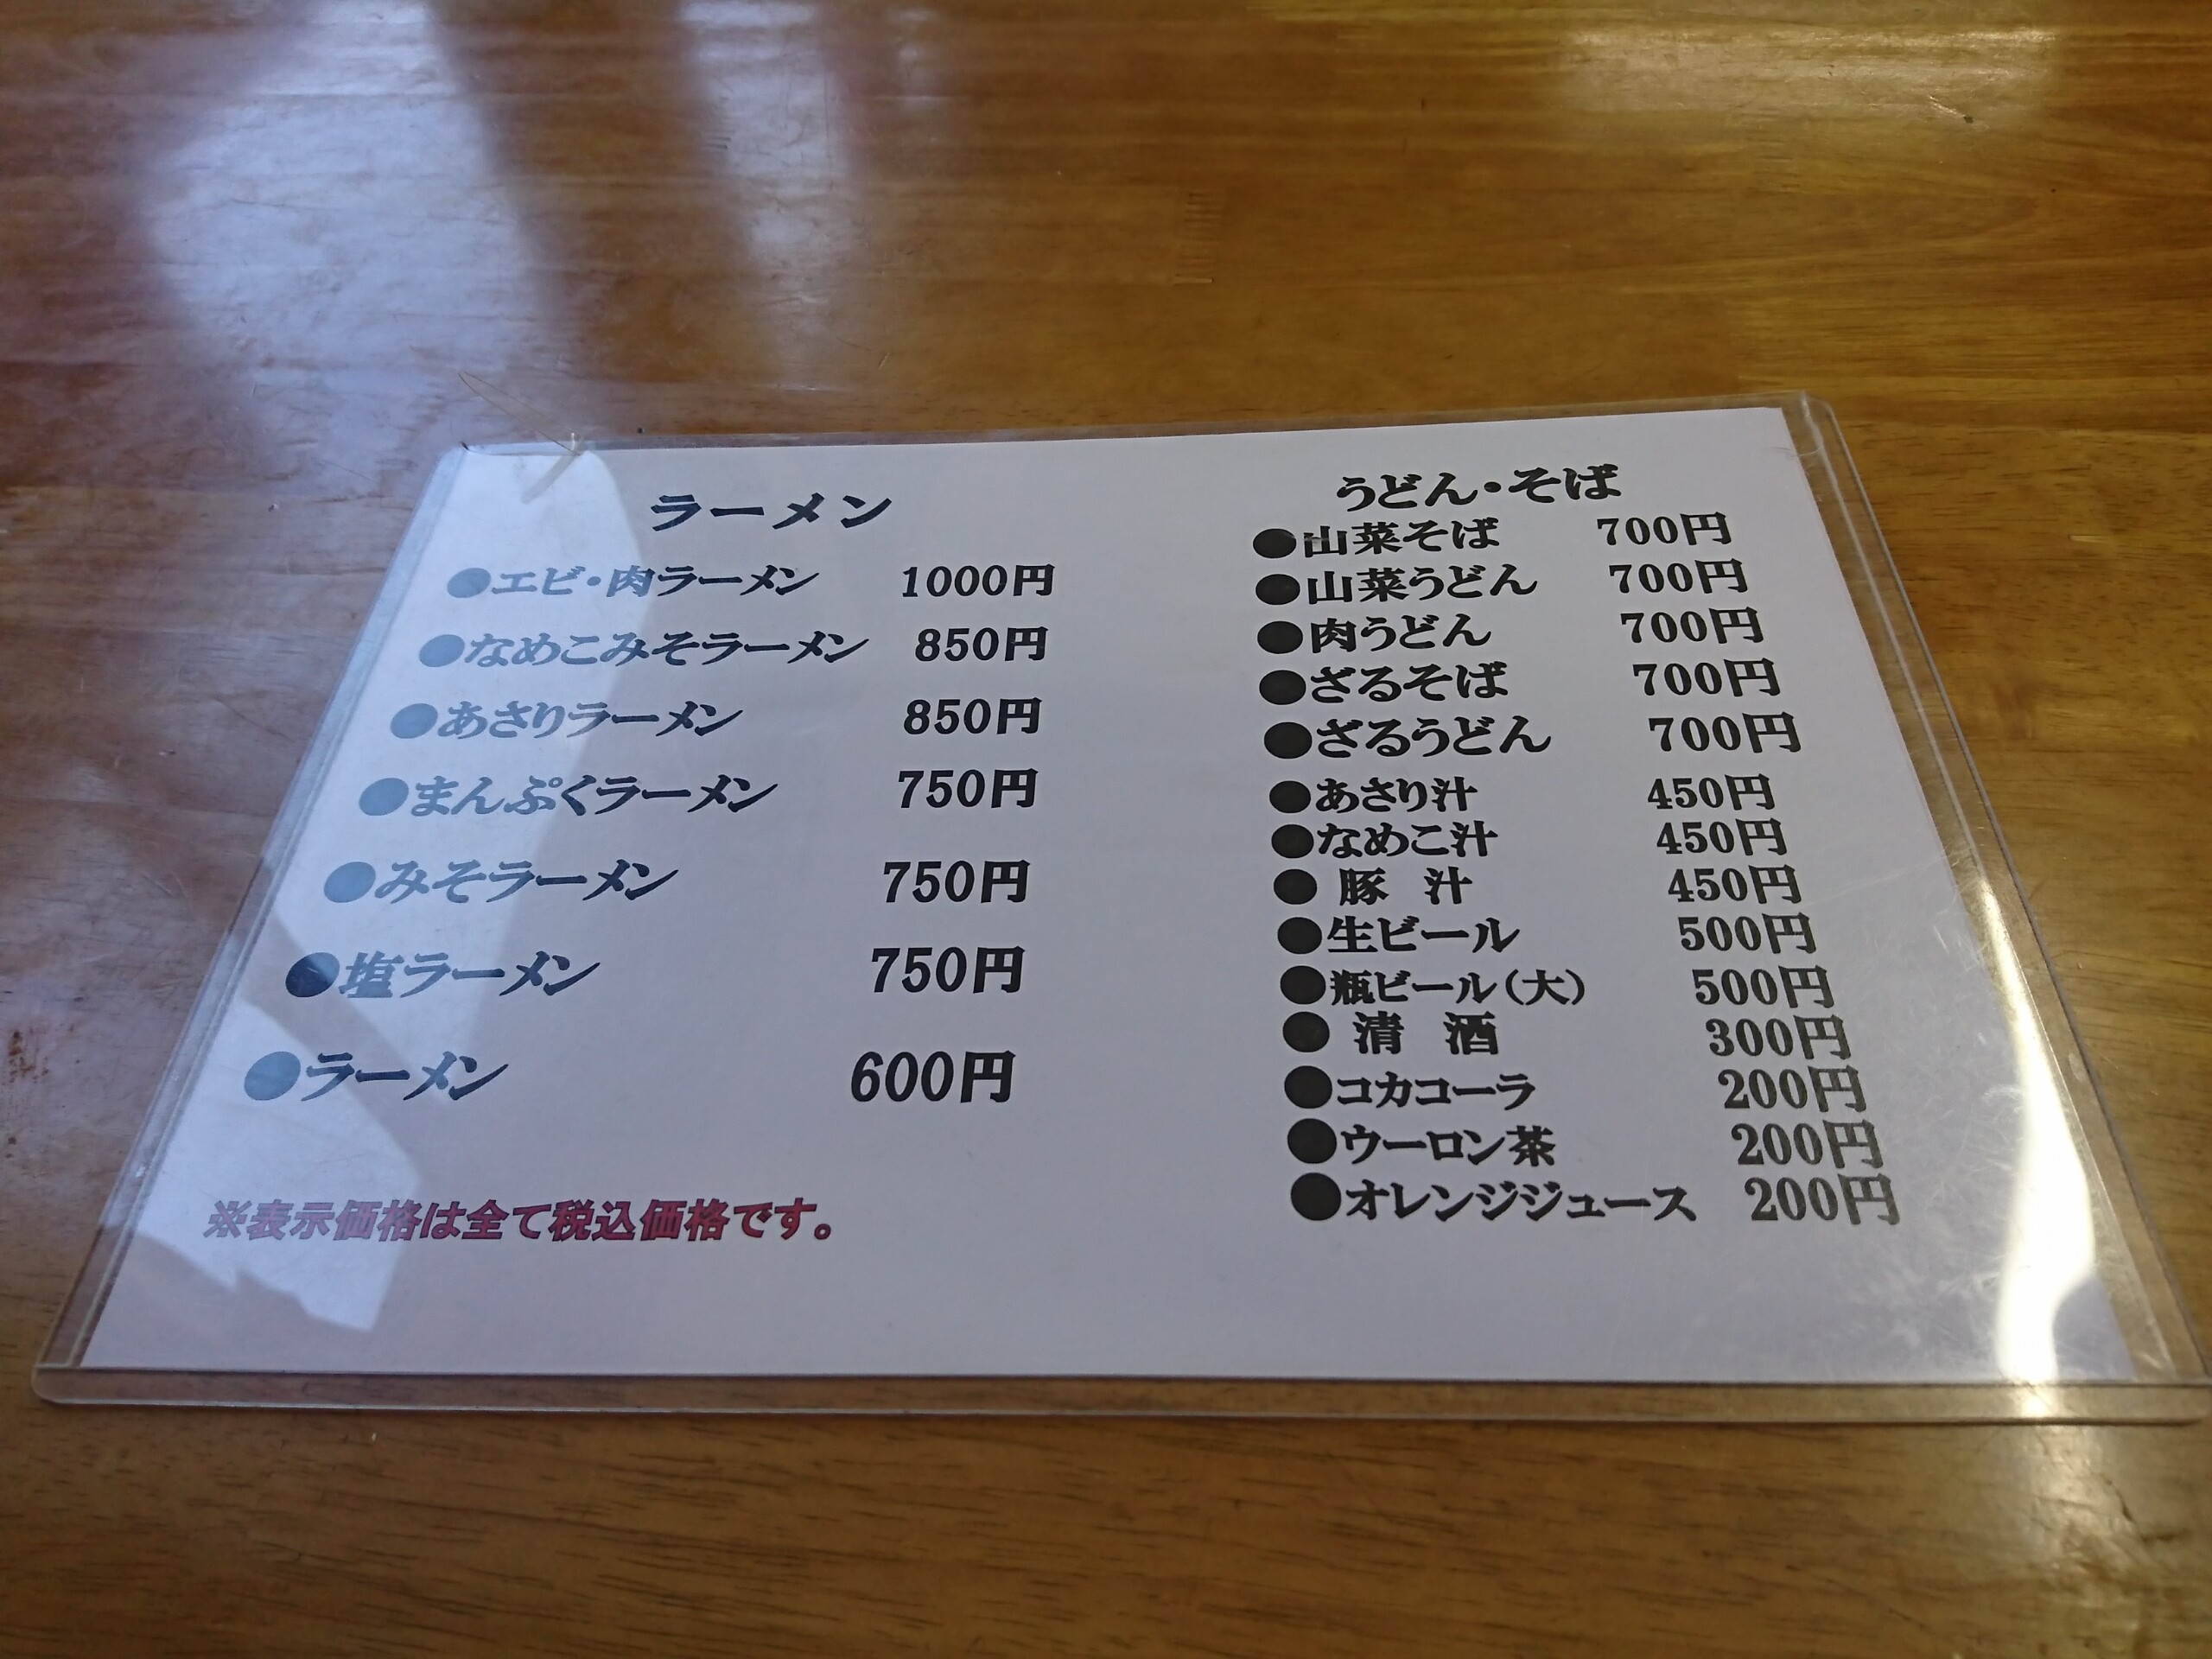 ラーメン
●エビ・肉ラーメン 1000円
●なめこみそラーメン 850円
●あさりラーメン 850円
●まんぷくラーメン 750円
●みそラーメン 750円
●塩ラーメン 750円
●ラーメン 600円
※表示価格は全て税込価格です。
うどん・そば
●山菜そば 700円
●山菜うどん 700円
●肉うどん 700円
●ざるそば 700円
●ざるうどん 700円
●あさり汁 450円
●なめこ汁 450円
●豚 汁 450円
●生ビール 500円
●瓶ビール(大) 500円
●清 酒 300円
●コカコーラ 200円
●ウーロン茶 200円
●オレンジジュース 200円